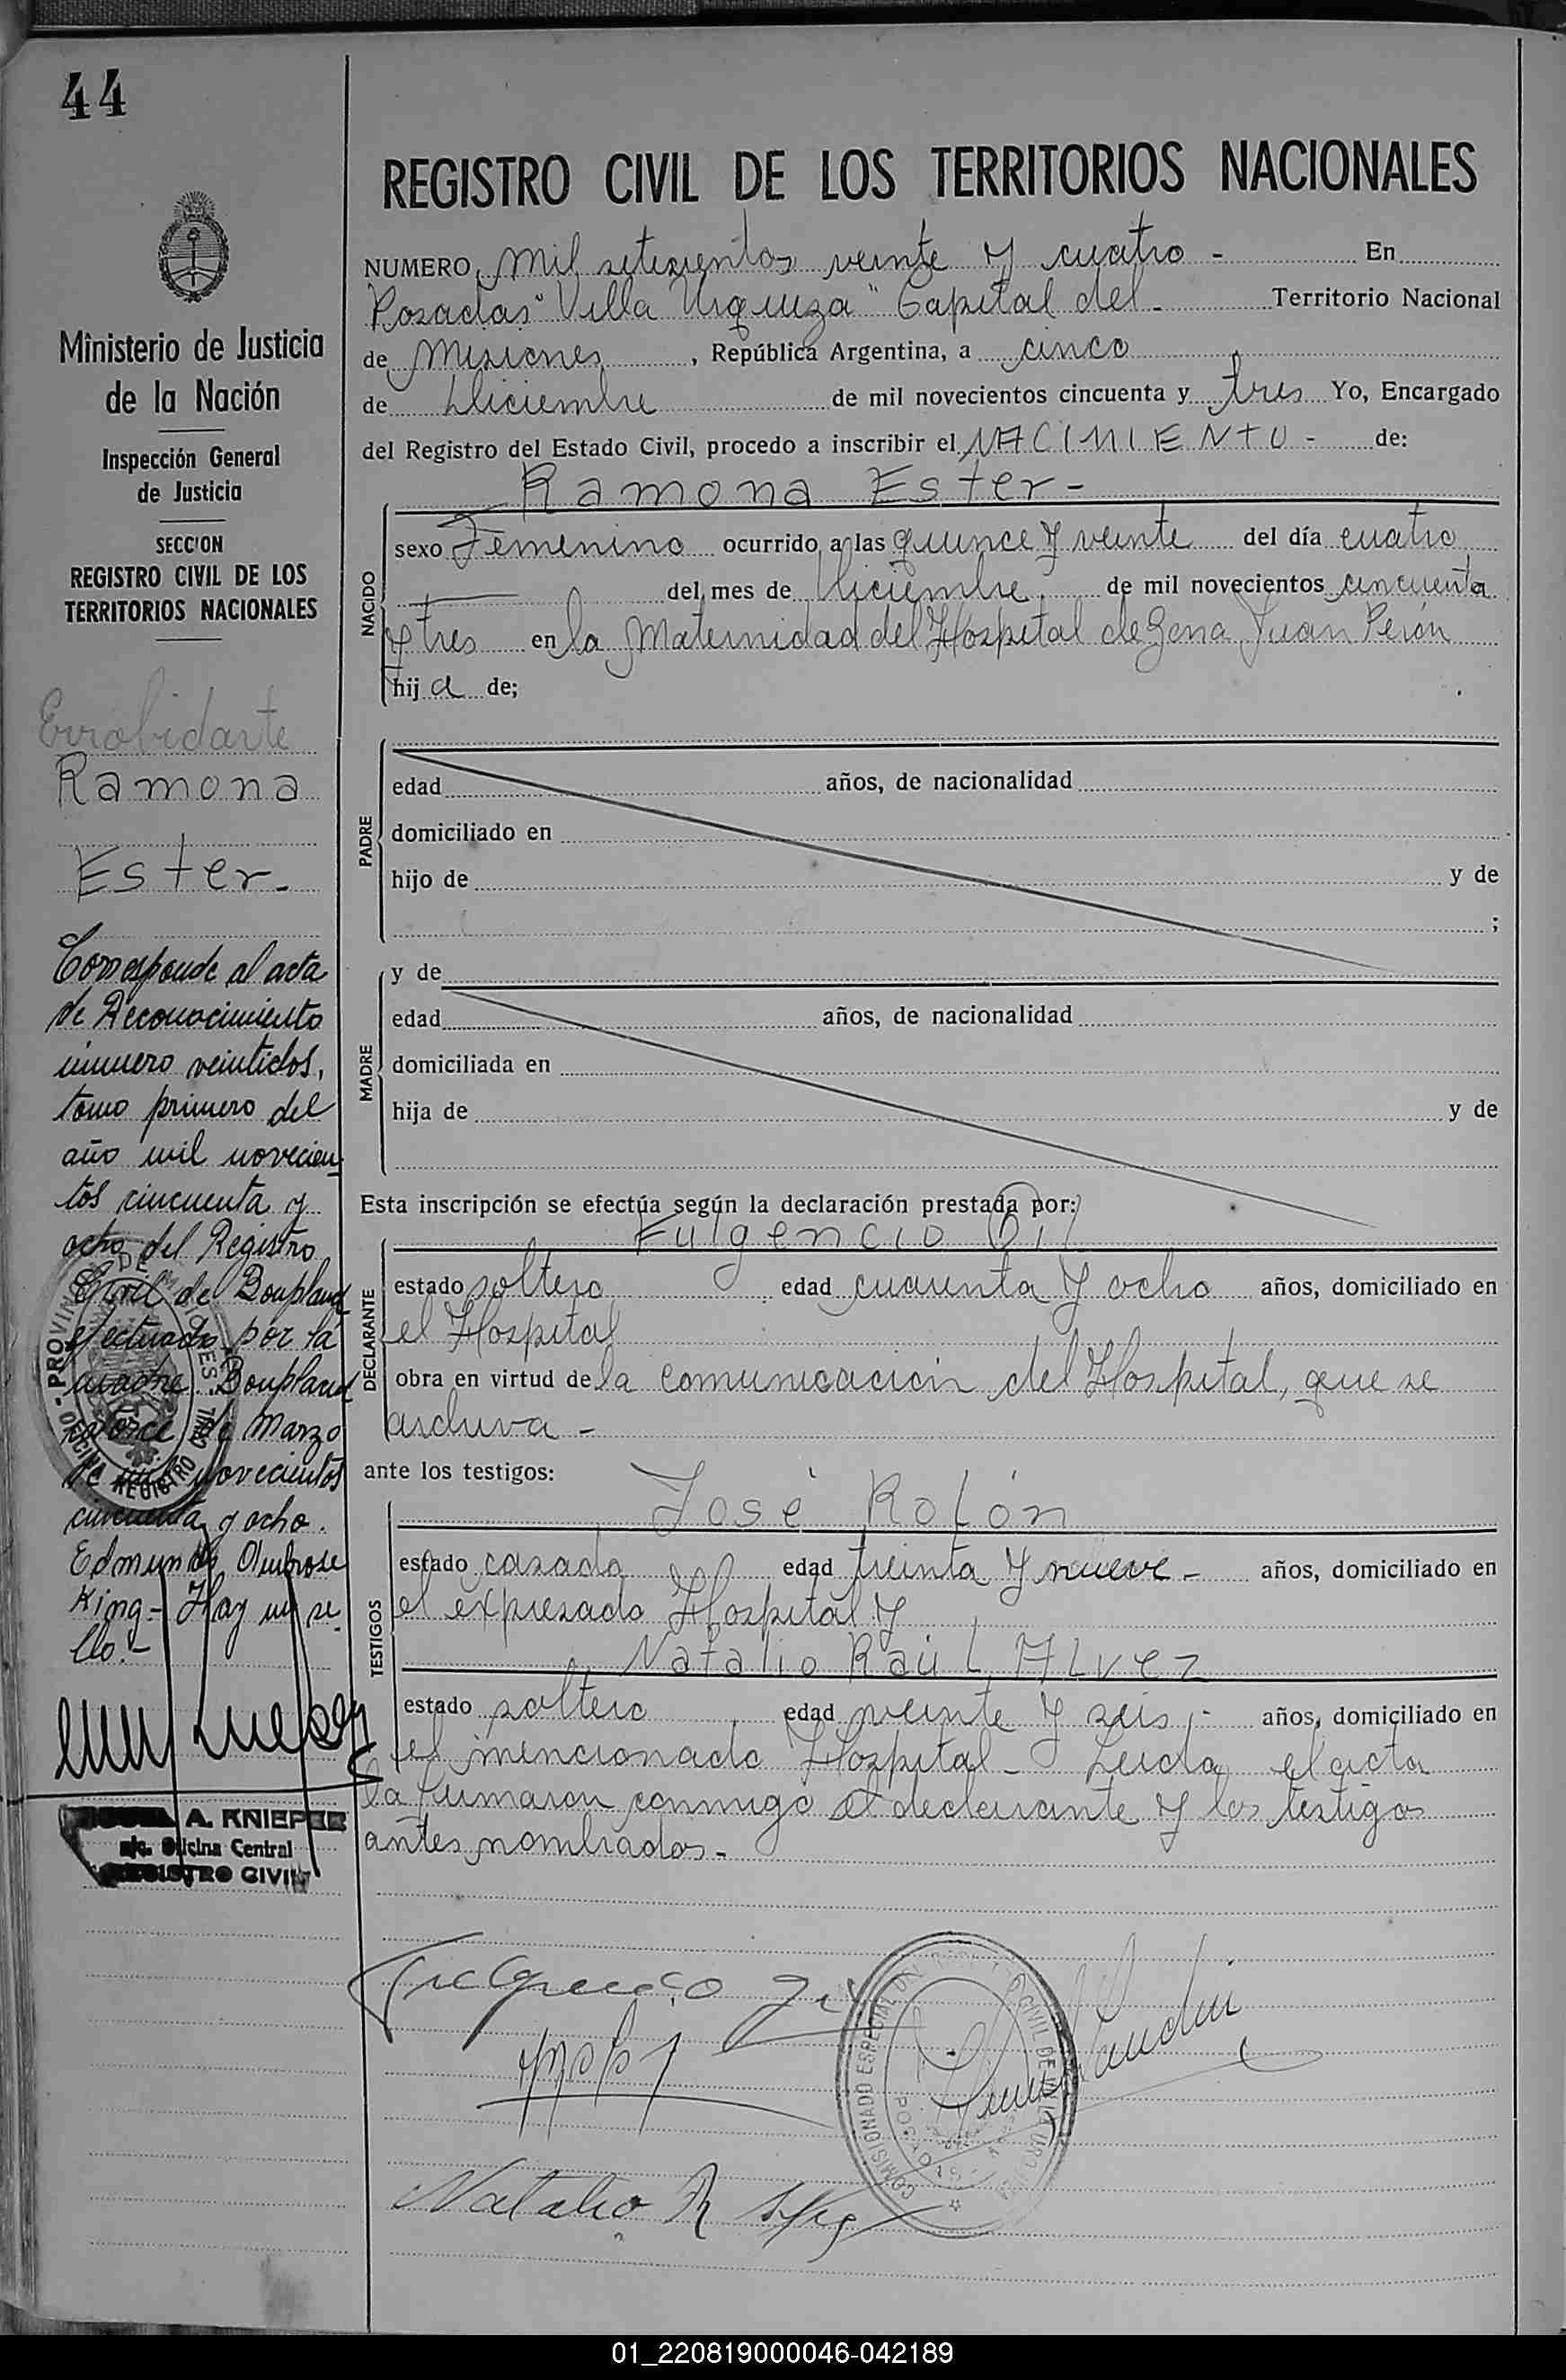 44
REGISTRO CIVIL DE LOS TERRITORIOS NACIONALES
Ministerio de Justicia
de la Nación
Inspección General
de Justicia
SECCION
REGISTRO CIVIL DE LOS
TERRITORIOS NACIONALES
Errobidarte
Ramona
Ester.-
Corresponde al acta
de Reconocimiento
número veintidos,
tomo primero del
año mil novecien
tos cincuenta y
ocho del Registro
Civil de Boupland
efectuado por la
madre. Boupland
catorce de Marzo
de mil novecientos
cincuenta y ocho.
Edmundo Ambrose
King.- Hay un se
llo.-
A. KNIEPER
a/c. Oficina Central
REGISTRO CIVIL
NUMERO mil setecientos veinte y cuatro - En
Posadas "Villa Urquiza" Capital del - Territorio Nacional
de Misiones, República Argentina, a cinco
de Diciembre de mil novecientos cincuenta y tres Yo, Encargado
del Registro del Estado Civil, procedo a inscribir el NACIMIENTO - de:
Ramona Ester -
NACIDO
sexo Femenino ocurrido a las quince y veinte del día cuatro
del mes de Diciembre de mil novecientos cincuenta
y tres en la Maternidad del Hospital de Zona Juan Perón
hija de;
PADRE
edad años, de nacionalidad
domiciliado en
hijo de y de
;
MADRE
y de
edad años, de nacionalidad
domiciliada en
hija de y de
Esta inscripción se efectúa según la declaración prestada por:
Fulgencio Gil
DECLARANTE
estado soltero edad cuarenta y ocho años, domiciliado en
el Hospital
obra en virtud de la comunicación del Hospital, que se
archiva -
ante los testigos:
José Rolón
TESTIGOS
estado casado edad treinta y nueve - años, domiciliado en
el expresado Hospital y
Natalio Raúl Alvez
estado soltero edad veinte y seis - años, domiciliado en
el mencionado Hospital - Leida el acta
la firmaron conmigo el declarante y los testigos
antes nombrados.-
Natalio R
COMISIONADO ESPECIAL
01_220819000046-042189